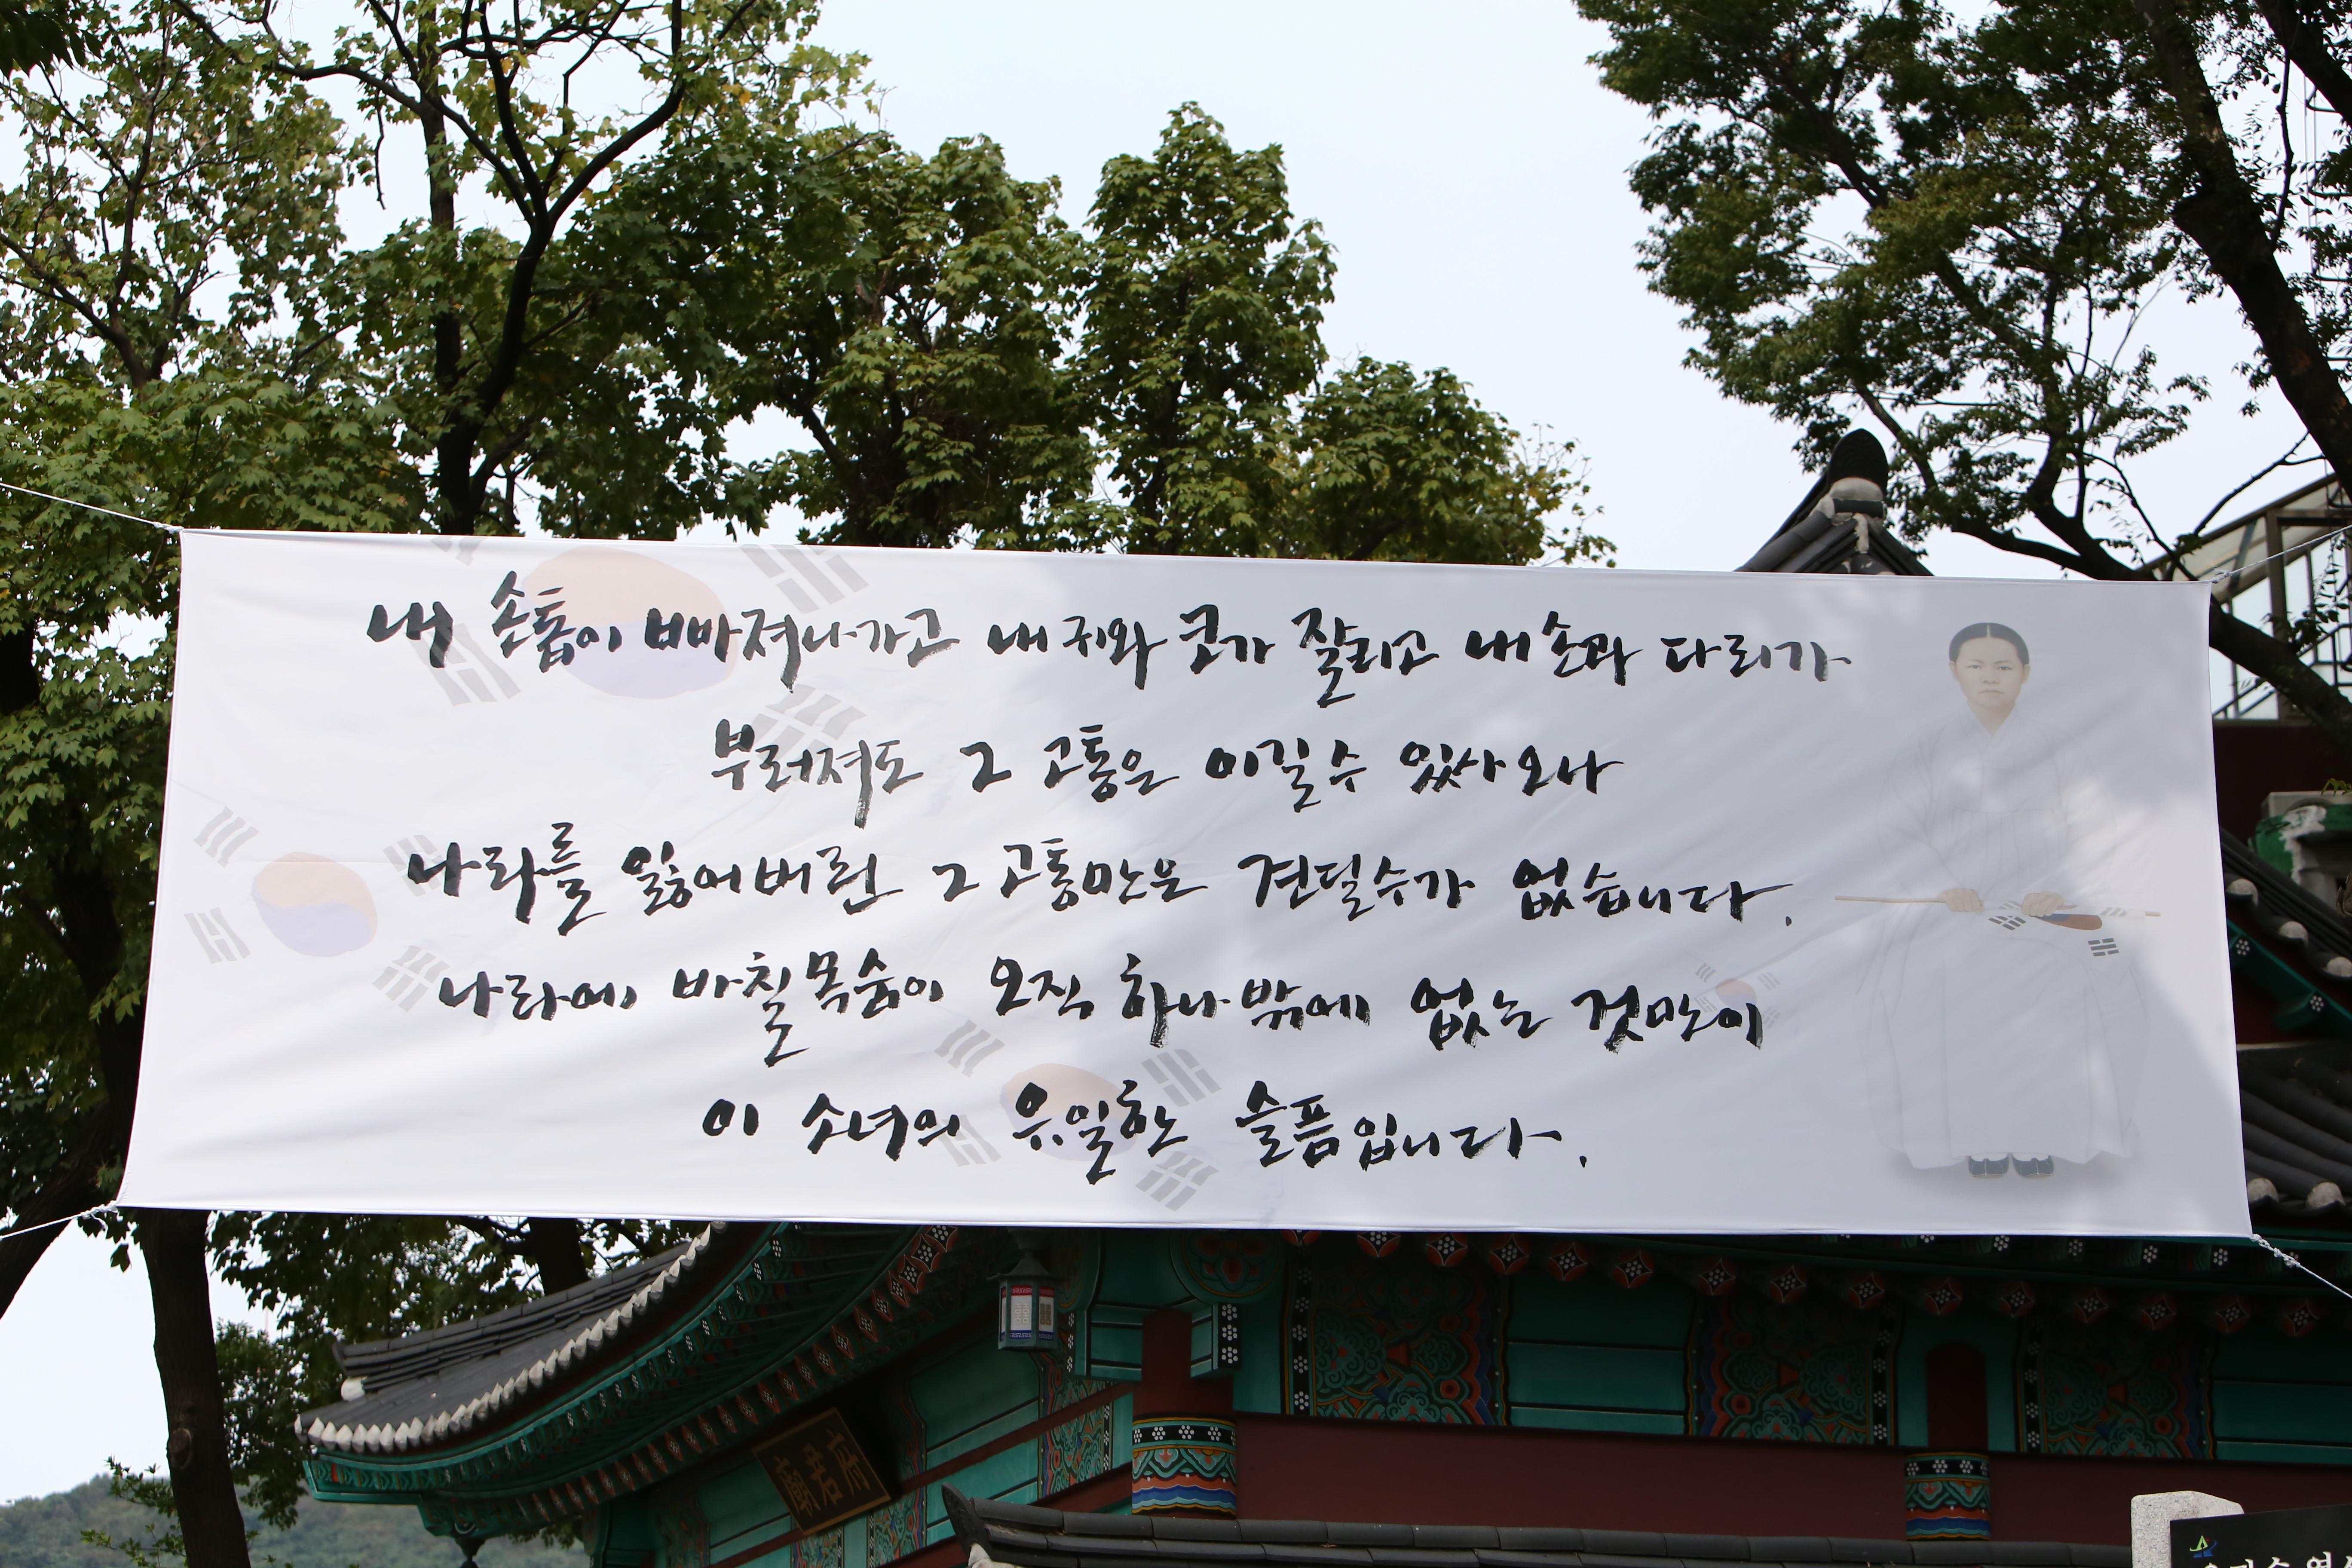 내 손톱이 빠져나가고 내 귀와 코가 잘리고 내 손과 다리가
부러져도 그 고통은 이길수 있사오나
나라를 잃어버린 그 고통만은 견딜수가 없습니다.
나라에 바칠 목숨이 오직 하나밖에 없는 것만이
이 소녀의 유일한 슬픔입니다.
府君廟